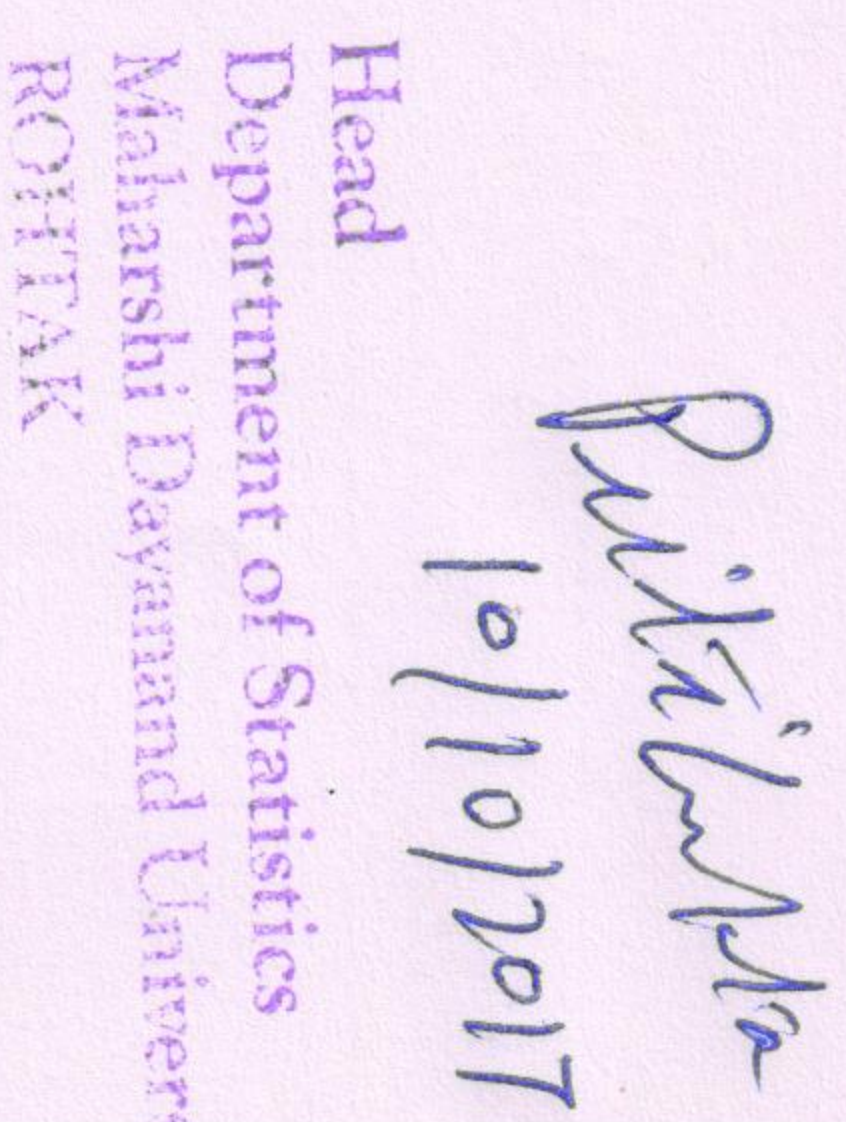 10/10/2017
Head
Department of Statistics
Maharshi Dayanand Univer
ROHTAK